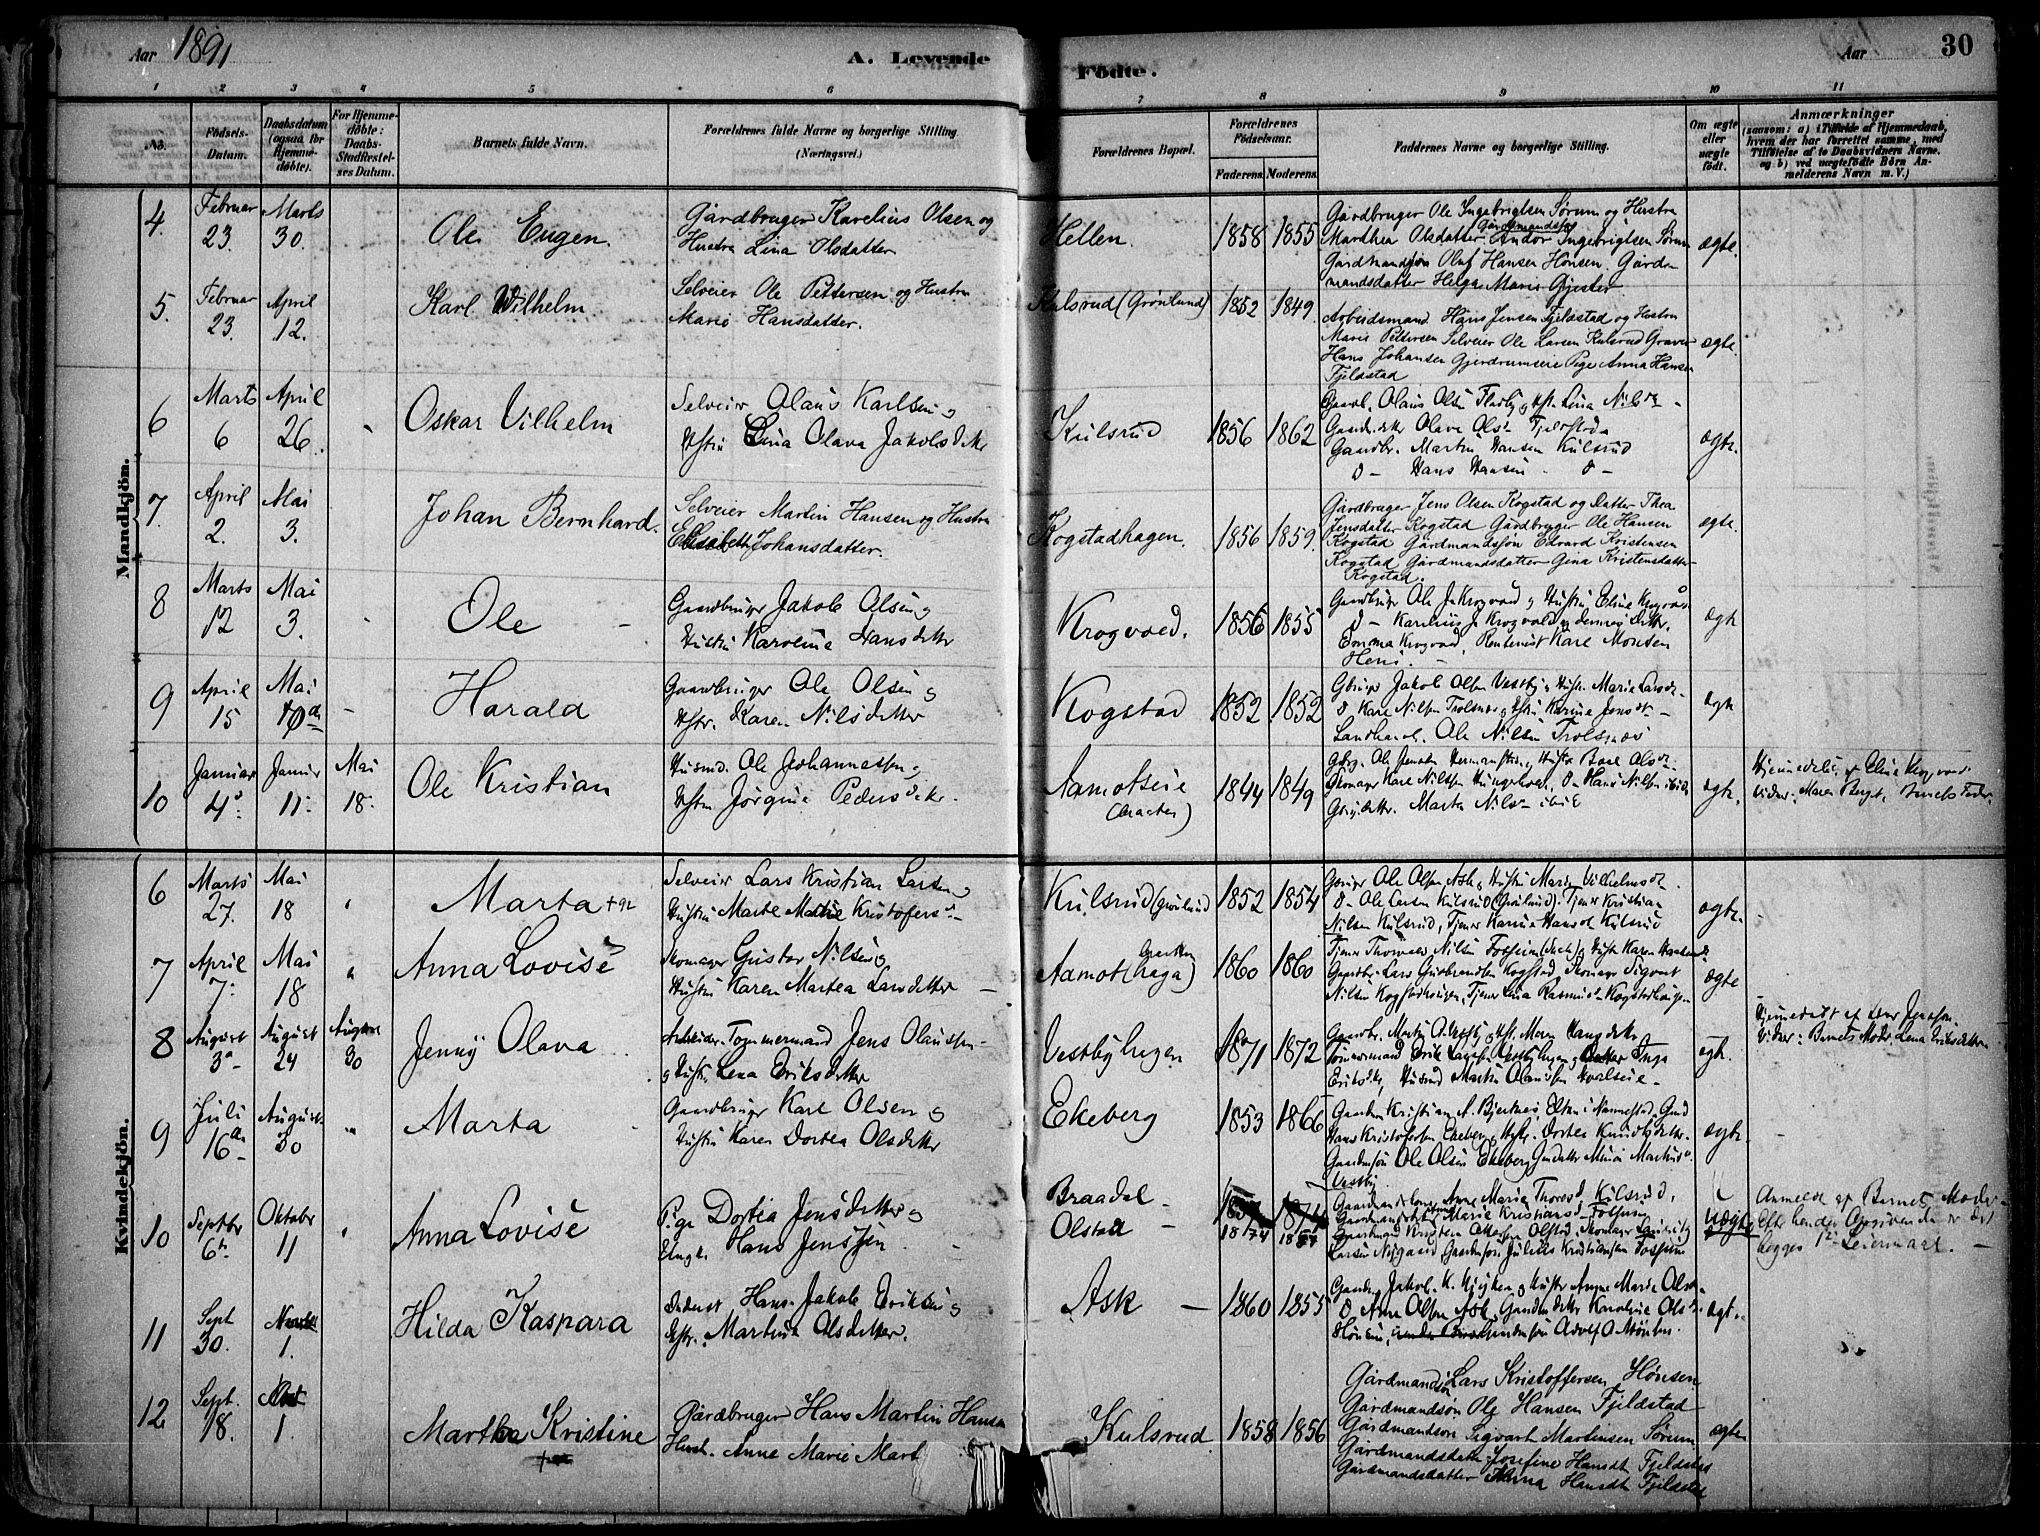 Aar 1891
A. Levende
Fødte.
Aar
30
1 2 3 4 5 6 7 8 9 10 11
No.
Fødsels-Datum.
Daabsdatum (ogsaa for Hjemme-døbte).
For Hjemme-døbte: Daabs-Stadfæstel-ses Datum.
Barnets fulde Navn.
Forældrenes fulde Navne og borgerlige Stilling (Næringsvei.)
Forældrenes Bopæl.
Forældrenes Fødselsaar.
Faderens. Moderens.
Faddernes Navne og borgerlige Stilling.
Om ægte eller uægte født.
Anmærkninger
(saasom: a) i Tilfælde af Hjemmedaab,
hvem der har forrettet samme, med
Tilføielse af to Daabsvidners Navne.
og b) ved uægtefødte Børn An-
melderens Navn m. V.)
Mandkjön.
4. Februar 23. Marts 30. Ole Eugen.
Gårdbruger Karelius Olsen og
Hustru Lina Olsdatter
Hellen. 1858 1855
Gårdbruger Ole Ingebrigtsen Sørum og Hustru
Marthea Olsdatter Gårdmandssøn Andor Ingebrigtsen Sørum
Gårdmandssøn Oluf Hansen Hønsen. Gård-
mandsdatter Helga Marie Gjester
ægte.
5. Februar 23. April 12. Karl Wilhelm
Selveier Ole Pettersen og Hustru
Marie Hansdatter.
Kulsrud (Grønlund) 1852 1849.
Arbeidsmand Hans Jensen Fjeldstad og Hustru
Marie Pettersen Selveier Ole Larsen Kulsrud Graver
Hans Johansen Gjerdrumseie Pige Anna Hansen
Fjeldstad
ægte.
6 Marts 6 April 26. Oskar Vilhelm
Selveier Olaus Karlsen og
Hstru Lina Olava Jakobsdtr
Kulsrud 1856 1862
Gaardb. Olaus Olsen Flatby og Hst. Lina Nilsdtr
Olava Ols Fjeldstad
Gaardbr. Martin Hansen Kulsrud
D- Hans Hansen - D-
ægte.
7. April 2. Mai 3. Johan Bernhard.
Selveier Martin Hansen og Hustru
Elisabeth Johansdatter.
Kogstadhagen. 1856 1859.
Gårdbruger Jens Olsen Kogstad og Datter Thea
Jensdatter Kogstad Gårdbruger Ole Hansen
Kogstad Gårdmandssøn Edvard Kristensen
Kogstad Gårdmandsdatter Gina Kristensdatter
Kogstad.
ægte.
8 Marts 12 Mai 3. Ole
Gaardbruger Jakob Olsen og
Hustru Karoline Hansdtter
Krogvold. 1856 1855
Gaardbruger Ole J. Krogvold og Hustru Eline Krogvold
D- Karelius J. Krogvold og dennes Dtter.
Emma Krogvold, Rentenist Karl Monsen
Heni.
ægte
9 April 15 Mai 10de Harald
Gaardbruger Ole Olsen og
Hstr. Karen Nilsdatter
Kogstad 1852 1852
Gbruger Jakob Olsen Vestby og Hustru Marie Larsd.
D Karl Nilsen Trolsnæs og Hstru Karine Jensdtr
Landhand. Ole Nilsen Trolsnæs
ægte
10 Januar 4de Januar 11 Mai 18. Ole Kristian
Husmd. Ole Johannessen og
Hstru Jørgine Pedersdtr.
Aamotseie
(Braaten) 1844 1849
Gbrg. Ole Jensen og Hustr Boel Olsdtr
Skomager Karl Nilsen D- Hans Nilsen ibid
Gbrg.dttr. Marta Nilsdtr ibid
ægte.
Hjemmedøbt af Eline Krogvold
Vidner: Maren Barnets Fader.
Kvindekjön.
6 Marts 27. Mai 18 Marta + 92
Selveier Lars Kristian Larsen og
Hustru Marte Marie Kristofersd.
Kulsrud (Grønlund 1852 1854
Gbruger Ole Olsen Ask og Hustru Marie Vilhelmsd.
D- Ole Larsen Kulsrud (Grønlund). Tjener Kristian
Nilsen Kulsrud, Tjener Karine Hansd Kulsrud
ægte.
7 April 7. Mai 18 Anna Lovise
Skomager Gustav Nilsen og
Hustru Karen Martea Larsdtter
Aamot (haga) 1860 1860
Tjener Thorvald Nilsen Fossum og Hustr Karen
Gaardbr. Lars Gulbrandsen Kogstad, Skomager Sigvart
Nilsen Kogstadhaugen, Tjener Lina Rasmusd. Kogstadhaugen
ægte
8 August 3de August 24 August 30 Jenny Olava
Arbeider Tømmermand Jens Olaussen
og Hustr. Lena Eriksdtter
Vestbyhagen 1871 1872
Gaardbr. Martin O. Vestby og Hst. Maren Hansdtr
Tømmermand Erik Larsen Vestbyhagen og Datter Inga
Eriksdtr, Husmd Martin Olaussen Kvalseie
ægte.
Hjemmedøbt af
Vidner: Barnets Moder, Lena Eriksdatter
9 Juli 16de August 30 Marta
Gaardbruger Karl Olsen og
Hustru Karen Dortea Olsdtter
Ekeberg 1853 1866
Gaardbr Kristian A. Bjertnes, Eltun i Nannestad, Gmd
Hans Kristofersen Ekeberg og Hstr. Dortea Knudsdtter.
Gaardmssøn Ole Olsen Ekeberg, Gmdsdtter Mina Martinsd
Vestby
ægte
10 Septbr 6te Oktober 11 Anna Lovise
Pige Dortea Jensdatter og
Ungk. Hans Jenssen
Braadal -
Olstad - 1874
Anne Marie Thoresd. Kulsrud,
Marie Kristiansd. Fossum
Gaardmand Kristen Olstad, Skomager
Larsen Nygaard, Gaardmssøn Julius Kristiansen Fossum
Uægte
Anmeldt af Barnets Moder
Efter hendes Opgivende er det
begges 1ste Leiermaal.
11 Sept 30. Novbr 1. Hilda Kaspara
Inderst Hans Jakob Eriksen og
Hstr. Martina Olsdtter.
Ask - 1860 1855
Gaardbr. Jakob K. og Hustr Anne Marie Olsd
D Arne Olsen Ask Gaardmdsdtter Karoline Olsd
Hønsen, Gaardmssøn Adolf O Hønsen.
ægt.
12 Sept. 18. 1. Martha Kristine
+
Gårdbruger Hans Martin Hansen
Hust. Anne Marie Mart
Kulsrud 1858 1856
Gårdmandssøn Lars Kristoffersen Hønsen
Gårdmandssøn Ole Hansen Fjeldstad
Gårdmandssøn Sigvart Martinsen Sørum
Gårdmandsdatter Josefine Hansdt Fjeldstad
Gårdmandsdatter Anna Hansdt Fjeldstad
ægte